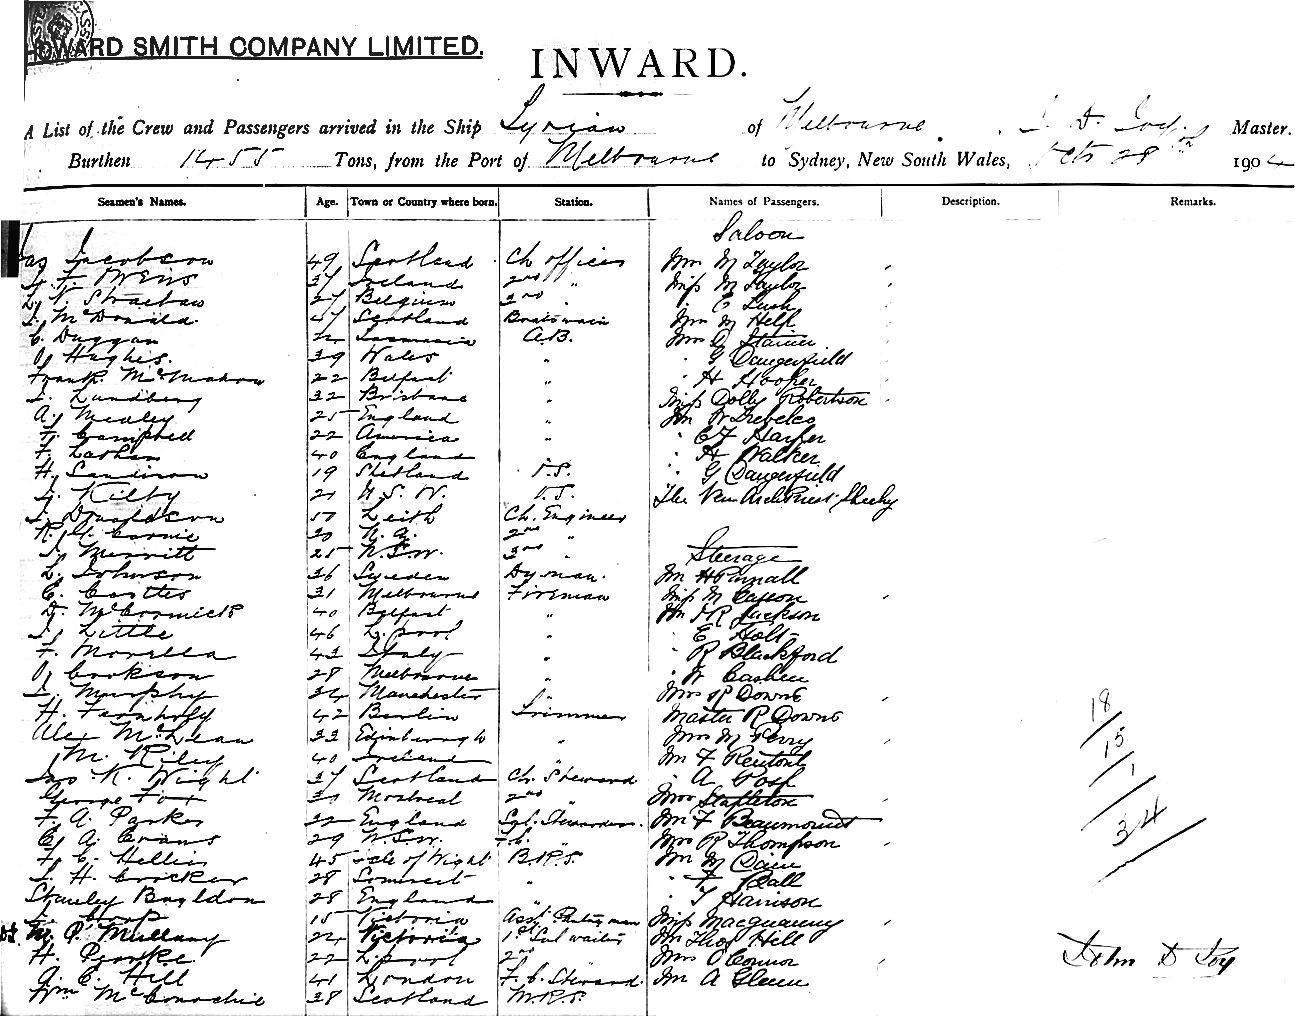 HOWARD SMITH COMPANY LIMITED.
INWARD.
A List of the Crew and Passengers arrived in the Ship Syrian of Melbourne. J. D. Joy Master.
Burthen 1455 Tons, from the Port of Melbourne to Sydney, New South Wales, Feb 28th 1904
Seamen's Names. Age. Town or Country where born. Station. Names of Passengers. Description. Remarks.
Saloon
Jas Jacobson 49 Scotland Ch officer Mrs M Taylor
37 Ireland 2nd " Miss M Taylor
27 Belgium 3rd " " E Lush
J. McDonald 47 Scotland Boatswain Mrs M Help
C Duggan Tasmania A.B. Mrs
J Hughes. 39 Wales " " G Dangerfield
Frank McMahon 22 Belfast " " H Hooper
J. Lundberg 32 Brisbane " Miss Dolly Robertson
A. Mealey 25 England " Mr W Trebelco
F. Campbell 22 America " " C F Harper
F. 40 England " " H Walker
H. Sandison 19 Shetland O.S. " G Dangerfield
J. Kilby 21 N.S.W. O.S. The Ven Archpriest Sheehy
J. Davidson 57 Leith Ch. Engineer
R. H. 30 N.Z. 2nd "
J. Merritt 25 N.S.W. 3rd " Steerage
L. Johnson 36 Sweden Dyman. Mr H Punnall
C. Costes 31 Melbourne Fireman Miss M Casson
D. McCormick 40 Belfast " Mr J R Jackson
J. Little 46 L.pool " " E Holt
F. Morella 43 Italy " " R Blackford
J Cookson 28 Melbourne " " W Cashen
J. Murphy 34 Manchester " Mrs R Downs
H. Farnholz 42 Berlin Trimmer Master R Downs
Alex McLean 33 Edinburgh " Mrs M Perry
M. Riley 40 Ireland " Mr F Rentoul
Jas K. Wight 37 Scotland Ch. Steward " A Posh
George Fox 30 Montreal 2nd " Mrs Stapleton
F. A. Parker 32 England Sgl. Stewardess. Mr F Beaumount
C A Evans 29 N.S.W. F.C. " Mrs R Thompson
F. C. Hellis 45 Isle of Wight B.R.S. Mr M Dain
J. H. Crocker 28 Somerset " " F Ball
Stanley Bagldon 28 England " " T Harrison
15 Victoria Asst Pantryman Miss Macquanny
M. P. Mullany 24 Victoria 1st Sal waiter Mr Thos Hell
H. Pearke 22 L.pool 2nd " Mrs O'Connor
J. E. Hill 41 London F.C. Steward. Mr A Glenn
Wm McConochie 38 Scotland M.R.S.
18
15
1
34
John D Joy